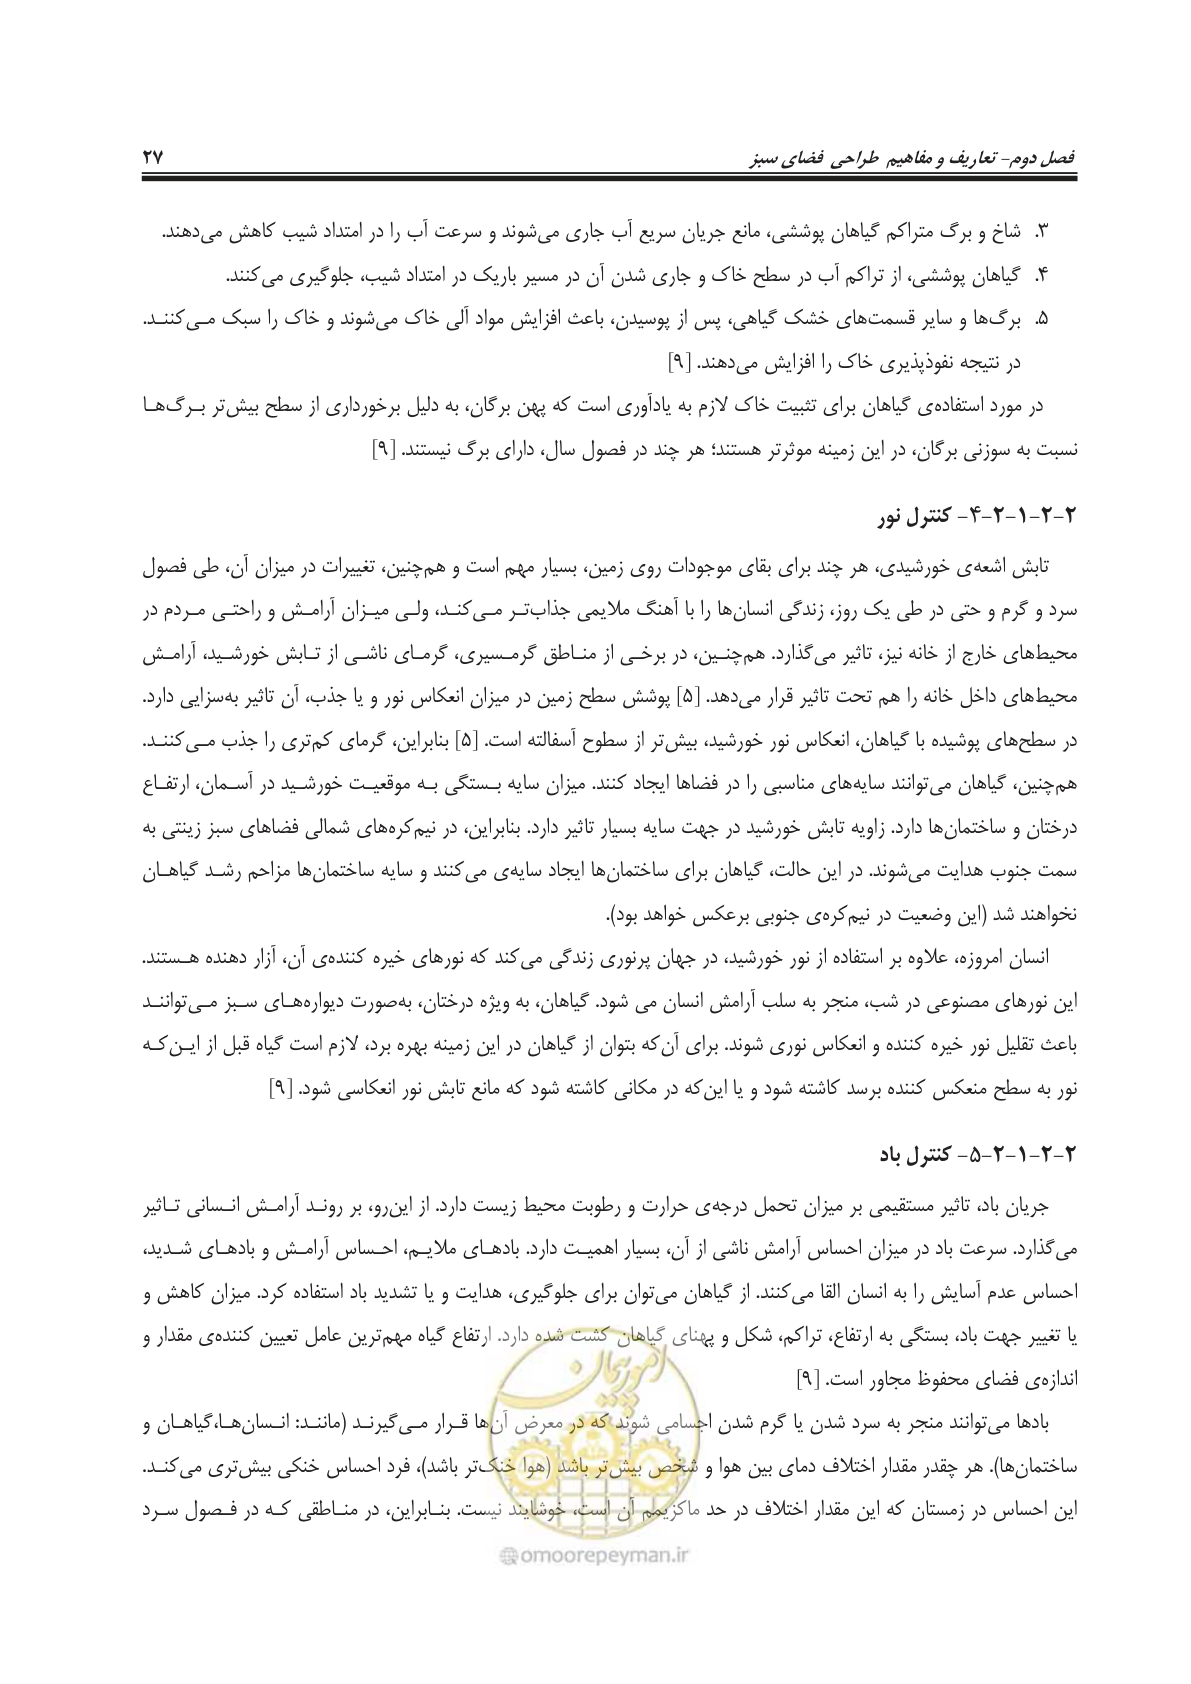 فصل دوم- تعاریف و مفاهیم طراحی فضای سبز ۲۷
۳. شاخ و برگ متراکم گیاهان پوششی، مانع جریان سریع آب جاری می‌شوند و سرعت آب را در امتداد شیب کاهش می‌دهند.
۴. گیاهان پوششی، از تراکم آب در سطح خاک و جاری شدن آن در مسیر باریک در امتداد شیب، جلوگیری می‌کنند.
۵. برگ‌ها و سایر قسمت‌های خشک گیاهی، پس از پوسیدن، باعث افزایش مواد آلی خاک می‌شوند و خاک را سبک مـی‌کننـد.
در نتیجه نفوذپذیری خاک را افزایش می‌دهند. [۹]
در مورد استفاده‌ی گیاهان برای تثبیت خاک لازم به یادآوری است که پهن برگان، به دلیل برخورداری از سطح بیش‌تر بـرگ‌هـا
نسبت به سوزنی برگان، در این زمینه موثرتر هستند؛ هر چند در فصول سال، دارای برگ نیستند. [۹]
۲-۲-۱-۲-۴- کنترل نور
تابش اشعه‌ی خورشیدی، هر چند برای بقای موجودات روی زمین، بسیار مهم است و هم‌چنین، تغییرات در میزان آن، طی فصول
سرد و گرم و حتی در طی یک روز، زندگی انسان‌ها را با آهنگ ملایمی جذاب‌تـر مـی‌کنـد، ولـی میـزان آرامـش و راحتـی مـردم در
محیط‌های خارج از خانه نیز، تاثیر می‌گذارد. هم‌چنـین، در برخـی از منـاطق گرمـسیری، گرمـای ناشـی از تـابش خورشـید، آرامـش
محیط‌های داخل خانه را هم تحت تاثیر قرار می‌دهد. [۵] پوشش سطح زمین در میزان انعکاس نور و یا جذب، آن تاثیر به‌سزایی دارد.
در سطح‌های پوشیده با گیاهان، انعکاس نور خورشید، بیش‌تر از سطوح آسفالته است. [۵] بنابراین، گرمای کم‌تری را جذب مـی‌کننـد.
هم‌چنین، گیاهان می‌توانند سایه‌های مناسبی را در فضاها ایجاد کنند. میزان سایه بـستگی بـه موقعیـت خورشـید در آسـمان، ارتفـاع
درختان و ساختمان‌ها دارد. زاویه تابش خورشید در جهت سایه بسیار تاثیر دارد. بنابراین، در نیم‌کره‌های شمالی فضاهای سبز زینتی به
سمت جنوب هدایت می‌شوند. در این حالت، گیاهان برای ساختمان‌ها ایجاد سایه‌ی می‌کنند و سایه ساختمان‌ها مزاحم رشـد گیاهـان
نخواهند شد (این وضعیت در نیم‌کره‌ی جنوبی برعکس خواهد بود).
انسان امروزه، علاوه بر استفاده از نور خورشید، در جهان پرنوری زندگی می‌کند که نورهای خیره کننده‌ی آن، آزار دهنده هـستند.
این نورهای مصنوعی در شب، منجر به سلب آرامش انسان می شود. گیاهان، به ویژه درختان، به‌صورت دیواره‌هـای سـبز مـی‌تواننـد
باعث تقلیل نور خیره کننده و انعکاس نوری شوند. برای آن‌که بتوان از گیاهان در این زمینه بهره برد، لازم است گیاه قبل از ایـن‌کـه
نور به سطح منعکس کننده برسد کاشته شود و یا این‌که در مکانی کاشته شود که مانع تابش نور انعکاسی شود. [۹]
۲-۲-۱-۲-۵- کنترل باد
جریان باد، تاثیر مستقیمی بر میزان تحمل درجه‌ی حرارت و رطوبت محیط زیست دارد. از این‌رو، بر رونـد آرامـش انـسانی تـاثیر
می‌گذارد. سرعت باد در میزان احساس آرامش ناشی از آن، بسیار اهمیـت دارد. بادهـای ملایـم، احـساس آرامـش و بادهـای شـدید،
احساس عدم آسایش را به انسان القا می‌کنند. از گیاهان می‌توان برای جلوگیری، هدایت و یا تشدید باد استفاده کرد. میزان کاهش و
یا تغییر جهت باد، بستگی به ارتفاع، تراکم، شکل و پهنای گیاهان کشت شده دارد. ارتفاع گیاه مهم‌ترین عامل تعیین کننده‌ی مقدار و
اندازه‌ی فضای محفوظ مجاور است. [۹]
بادها می‌توانند منجر به سرد شدن یا گرم شدن اجسامی شوند که در معرض آن‌ها قـرار مـی‌گیرنـد (ماننـد: انـسان‌هـا،گیاهـان و
ساختمان‌ها). هر چقدر مقدار اختلاف دمای بین هوا و شخص بیش‌تر باشد (هوا خنک‌تر باشد)، فرد احساس خنکی بیش‌تری می‌کنـد.
این احساس در زمستان که این مقدار اختلاف در حد ماکزیمم آن است، خوشایند نیست. بنـابراین، در منـاطقی کـه در فـصول سـرد
امور پیمان
@omoorepeyman.ir